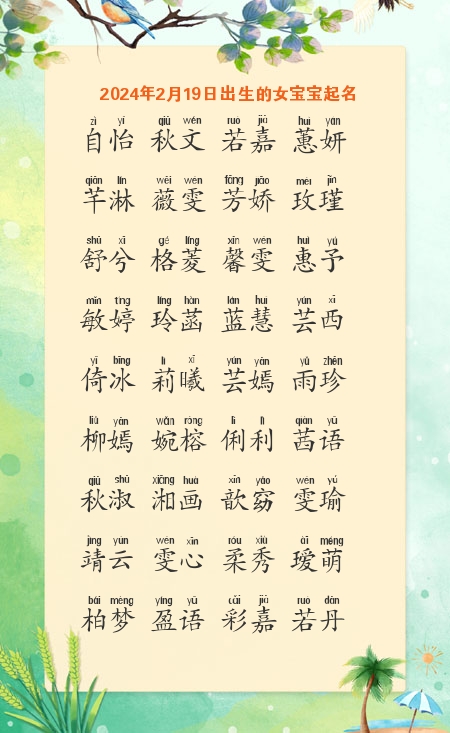 2024年2月19日出生的女宝宝起名
zì yí qiū wén ruò jiā huì yán
自怡 秋文 若嘉 蕙妍
qiān lín wēi wén fāng jiāo méi jǐn
芊淋 薇雯 芳娇 玫瑾
shū xī gé líng xīn wén huì yǔ
舒兮 格菱 馨雯 惠予
mǐn tíng líng hàn lán huì yún xī
敏婷 玲菡 蓝慧 芸西
yǐ bīng lì xī yún yān yǔ zhēn
倚冰 莉曦 芸嫣 雨珍
liǔ yān wǎn róng lì lì qiàn yǔ
柳嫣 婉榕 俐利 茜语
qiū shū xiāng huà xīn yǎo wén yú
秋淑 湘画 歆窈 雯瑜
jìng yún wén xīn róu xiù ài méng
靖云 雯心 柔秀 瑷萌
bǎi mèng yíng yǔ cǎi jiā ruò dān
柏梦 盈语 彩嘉 若丹